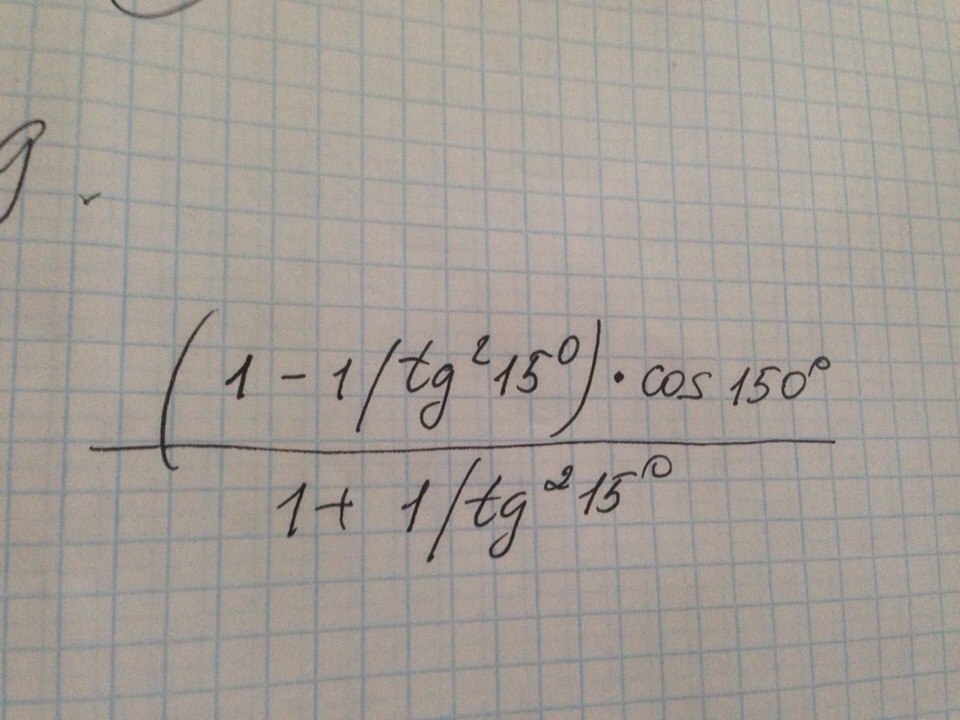 9.
(1 - 1/tg²15⁰) · cos 150°
1 + 1/tg²15⁰